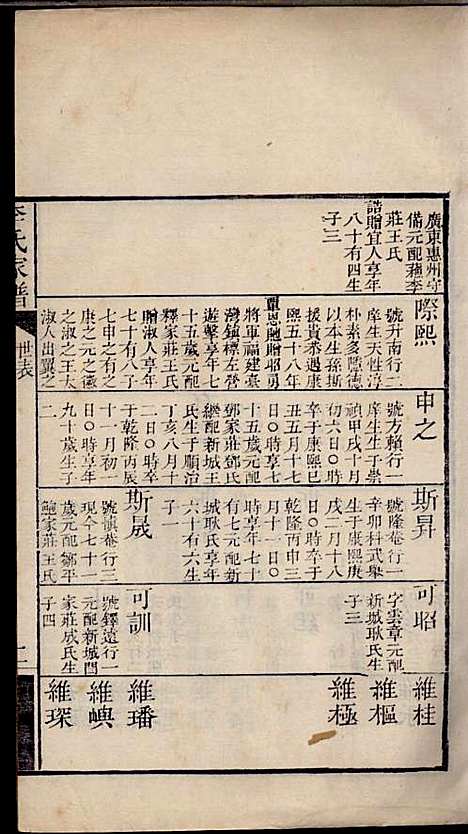 廣東惠州守
備元配藉李
莊王氏
誥贈宜人享年
八十有四生
子三
際熙
號升南行二
庠生天性淳
朴素多隱德
以本生孫斯
援貴恭遇康
熙五十八年
覃恩貤贈昭勇
將軍福建臺
灣鎮標左營
遊擊享年七
十五歲元配
釋家莊王氏
贈淑人享年
七十有八了
七申之有之
庚之元之徵
之淑之王大
淑人出翼之
申之
號方賴行一
庠生生于崇
禎甲戌十月
初六日〇時
卒于康熙已
丑五月十七
日〇時享年
十五歲元配
鄧家莊鄧氏
繼配新城王
氏生于順治
丁亥八月十
二日〇時卒
于乾隆丙辰
十一月初一
日〇時享年
九十歲生子
二
斯昇
號隆菴行一
辛卯科武舉
生于康熙庚
戌二月十八
日〇時卒于
乾隆丙申三
月十一日〇
時享年七十
有七元配新
城耿氏享年
六十有六生
子一
斯晟
號慎菴行三
現今七十一
歲元配鄒平
鮑家莊王氏
可昭
字雲章元配
新城耿氏生
子三
可訓
號鐸遠行一
元配新城閆
家莊成氏生
子四
維桂
維樞
維極
維璠
維嶼
維琛
李氏家譜
世表